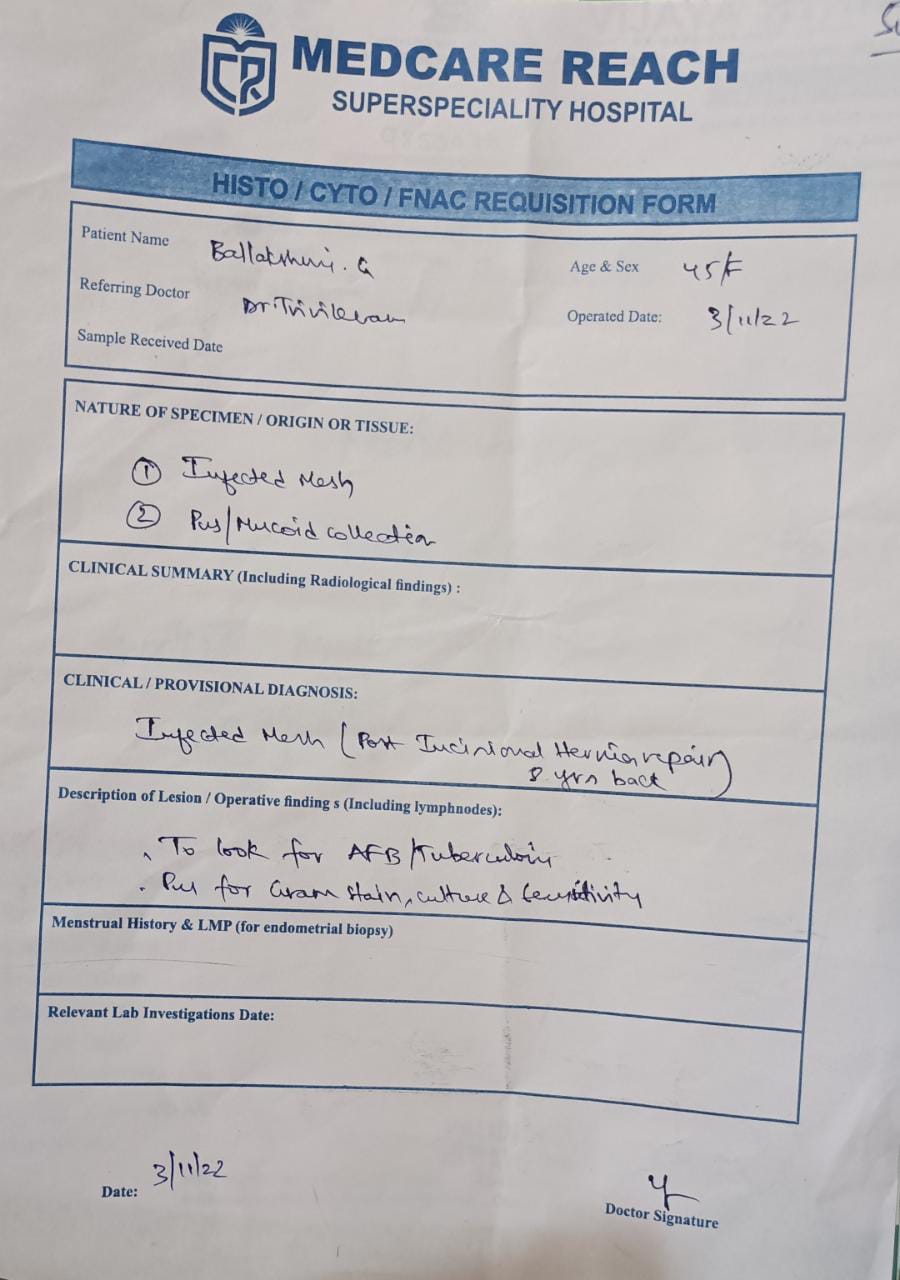 MEDCARE REACH
SUPERSPECIALITY HOSPITAL
HISTO / CYTO / FNAC REQUISITION FORM
Patient Name
Age & Sex 45/F
Referring Doctor
Operated Date: 3/11/22
Sample Received Date
NATURE OF SPECIMEN / ORIGIN OR TISSUE:
① Infected Mesh
② Pus/Mucoid collection
CLINICAL SUMMARY (Including Radiological findings) :
CLINICAL / PROVISIONAL DIAGNOSIS:
Infected Mesh (Post Incisional Hernia repair)
8 yrs back
Description of Lesion / Operative finding s (Including lymphnodes):
. To look for AFB/Tuberculosis
. Pus for Gram stain, culture & Sensitivity
Menstrual History & LMP (for endometrial biopsy)
Relevant Lab Investigations Date:
Date: 3/11/22
Doctor Signature